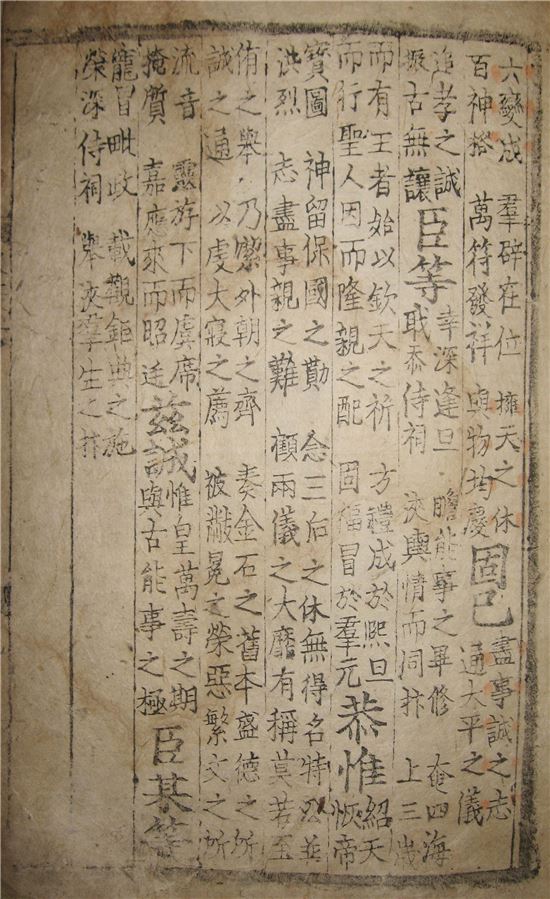 六變成 羣辟在位 擁天之休
百神格 萬符發祥 與物均慶
固已
盡事誠之志
通大平之儀
追孝之誠
振古無讓
臣等
幸深逢旦 瞻能事之畢修 奄四海
職忝侍祠 夾輿情而同抃 上三歲
而有王者始以欽天之祈 方禮成於熙旦
而行聖人因而隆親之配 固福冒於羣元
恭惟
紹天
恢帝
寶圖 神留保國之勤 念三后之休無得名特 並
洪烈 志盡事親之難 顧兩儀之大靡有稱莫若至
侑之舉 乃潔外朝之齊 奏金石之舊本盛德之所
誠之通 以虔大寢之薦 被黻冕之榮惡繁文之所
流音 靈游下而虞席
掩質 嘉應來而昭廷
茲誠
惟皇萬壽之期
與古能事之極
臣某等
寵冒毗政 載觀鉅典之施
榮深侍祠 舉夾羣生之抃